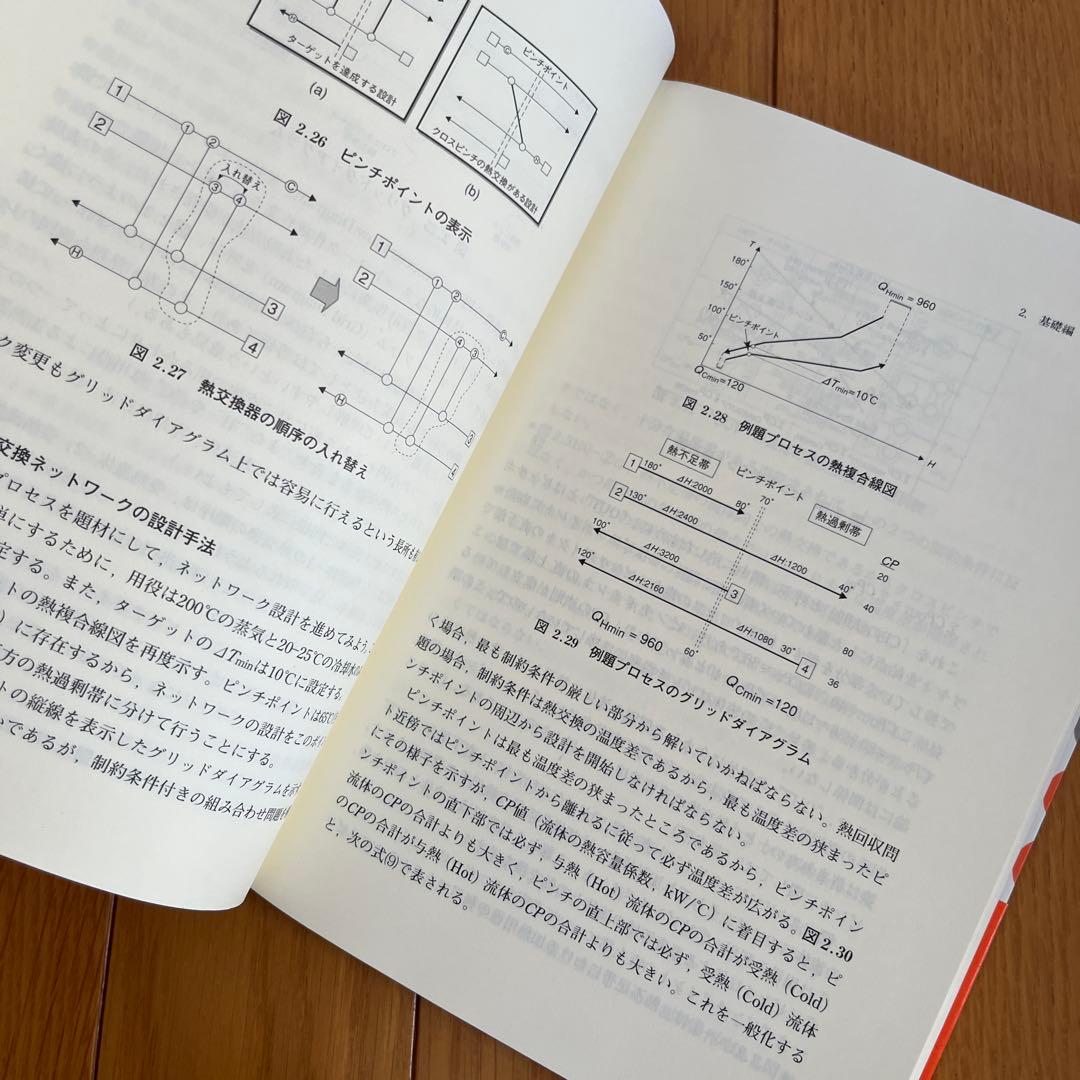 ターゲットを達成する設計
(a)
ピンチポイント
クロスピンチの熱交換がある設計
(b)
図 2.26 ピンチポイントの表示
1
2
1
2
C
入れ替え
3
4
H
3
4
1
2
1
2
C
4
3
H
3
4
図 2.27 熱交換器の順序の入れ替え
ク変更もグリッドダイアグラム上では容易に行えるという長所も
交換ネットワークの設計手法
プロセスを題材にして，ネットワーク設計を進めてみよう．
単にするために，用役は200℃の蒸気と20-25℃の冷却水の
定する。また，ターゲットのΔTminは10℃に設定する。
トの熱複合線図を再度示す。ピンチポイントは65℃
）に存在するから，ネットワークの設計をこのポイ
方の熱過剰帯に分けて行うことにする。
トの縦線を表示したグリッドダイアグラムを示
いであるが，制約条件付きの組み合わせ問題を
2. 基礎編
T
180°
150°
100°
50°
ピンチポイント
QHmin = 960
QCmin=120
ΔTmin=10℃
H
図 2.28 例題プロセスの熱複合線図
熱不足帯
ピンチポイント
熱過剰帯
1 180° ΔH:2000 80° 70°
2 130° ΔH:2400 ΔH:1200 40°
100° ΔH:3200 3
120° ΔH:2160 60° ΔH:1080 30° 4
CP
20
40
80
36
QHmin = 960
QCmin=120
図 2.29 例題プロセスのグリッドダイアグラム
く場合，最も制約条件の厳しい部分から解いていかねばならない。熱回収問
題の場合，制約条件は熱交換の温度差であるから，最も温度差の狭まったピ
ンチポイントの周辺から設計を開始しなければならない。
ピンチポイントは最も温度差の狭まったところであるから，ピンチポイン
ト近傍ではピンチポイントから離れるに従って必ず温度差が広がる。図2.30
にその様子を示すが，CP値（流体の熱容量係数，kW/℃）に着目すると，ピ
ンチポイントの直下部では必ず，与熱（Hot）流体のCPの合計が受熱（Cold）
流体のCPの合計よりも大きく，ピンチの直上部では必ず，受熱（Cold）流体
のCPの合計が与熱（Hot）流体のCPの合計よりも大きい。これを一般化する
と，次の式(9)で表される。